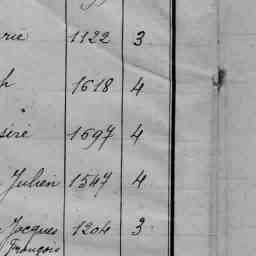 rie 1122 3
h 1618 4
siré 1697 4
Julien 1547 4
Jacques 1204 3
François